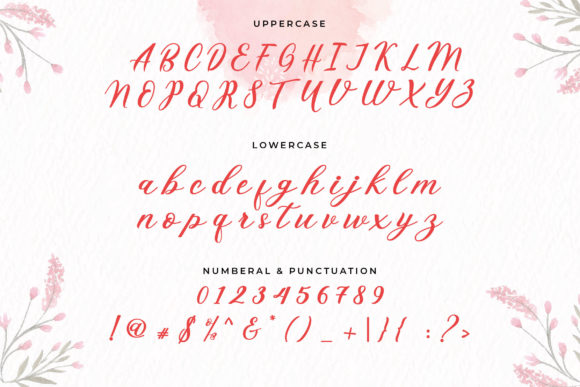 UPPERCASE
ABCDEFGHIJKLM
NOPQRSTUVWXYZ
LOWERCASE
abcdefghijklm
nopqrstuvwxyz
NUMBERAL & PUNCTUATION
0123456789
!@#$%^&*()_+|}{:?>